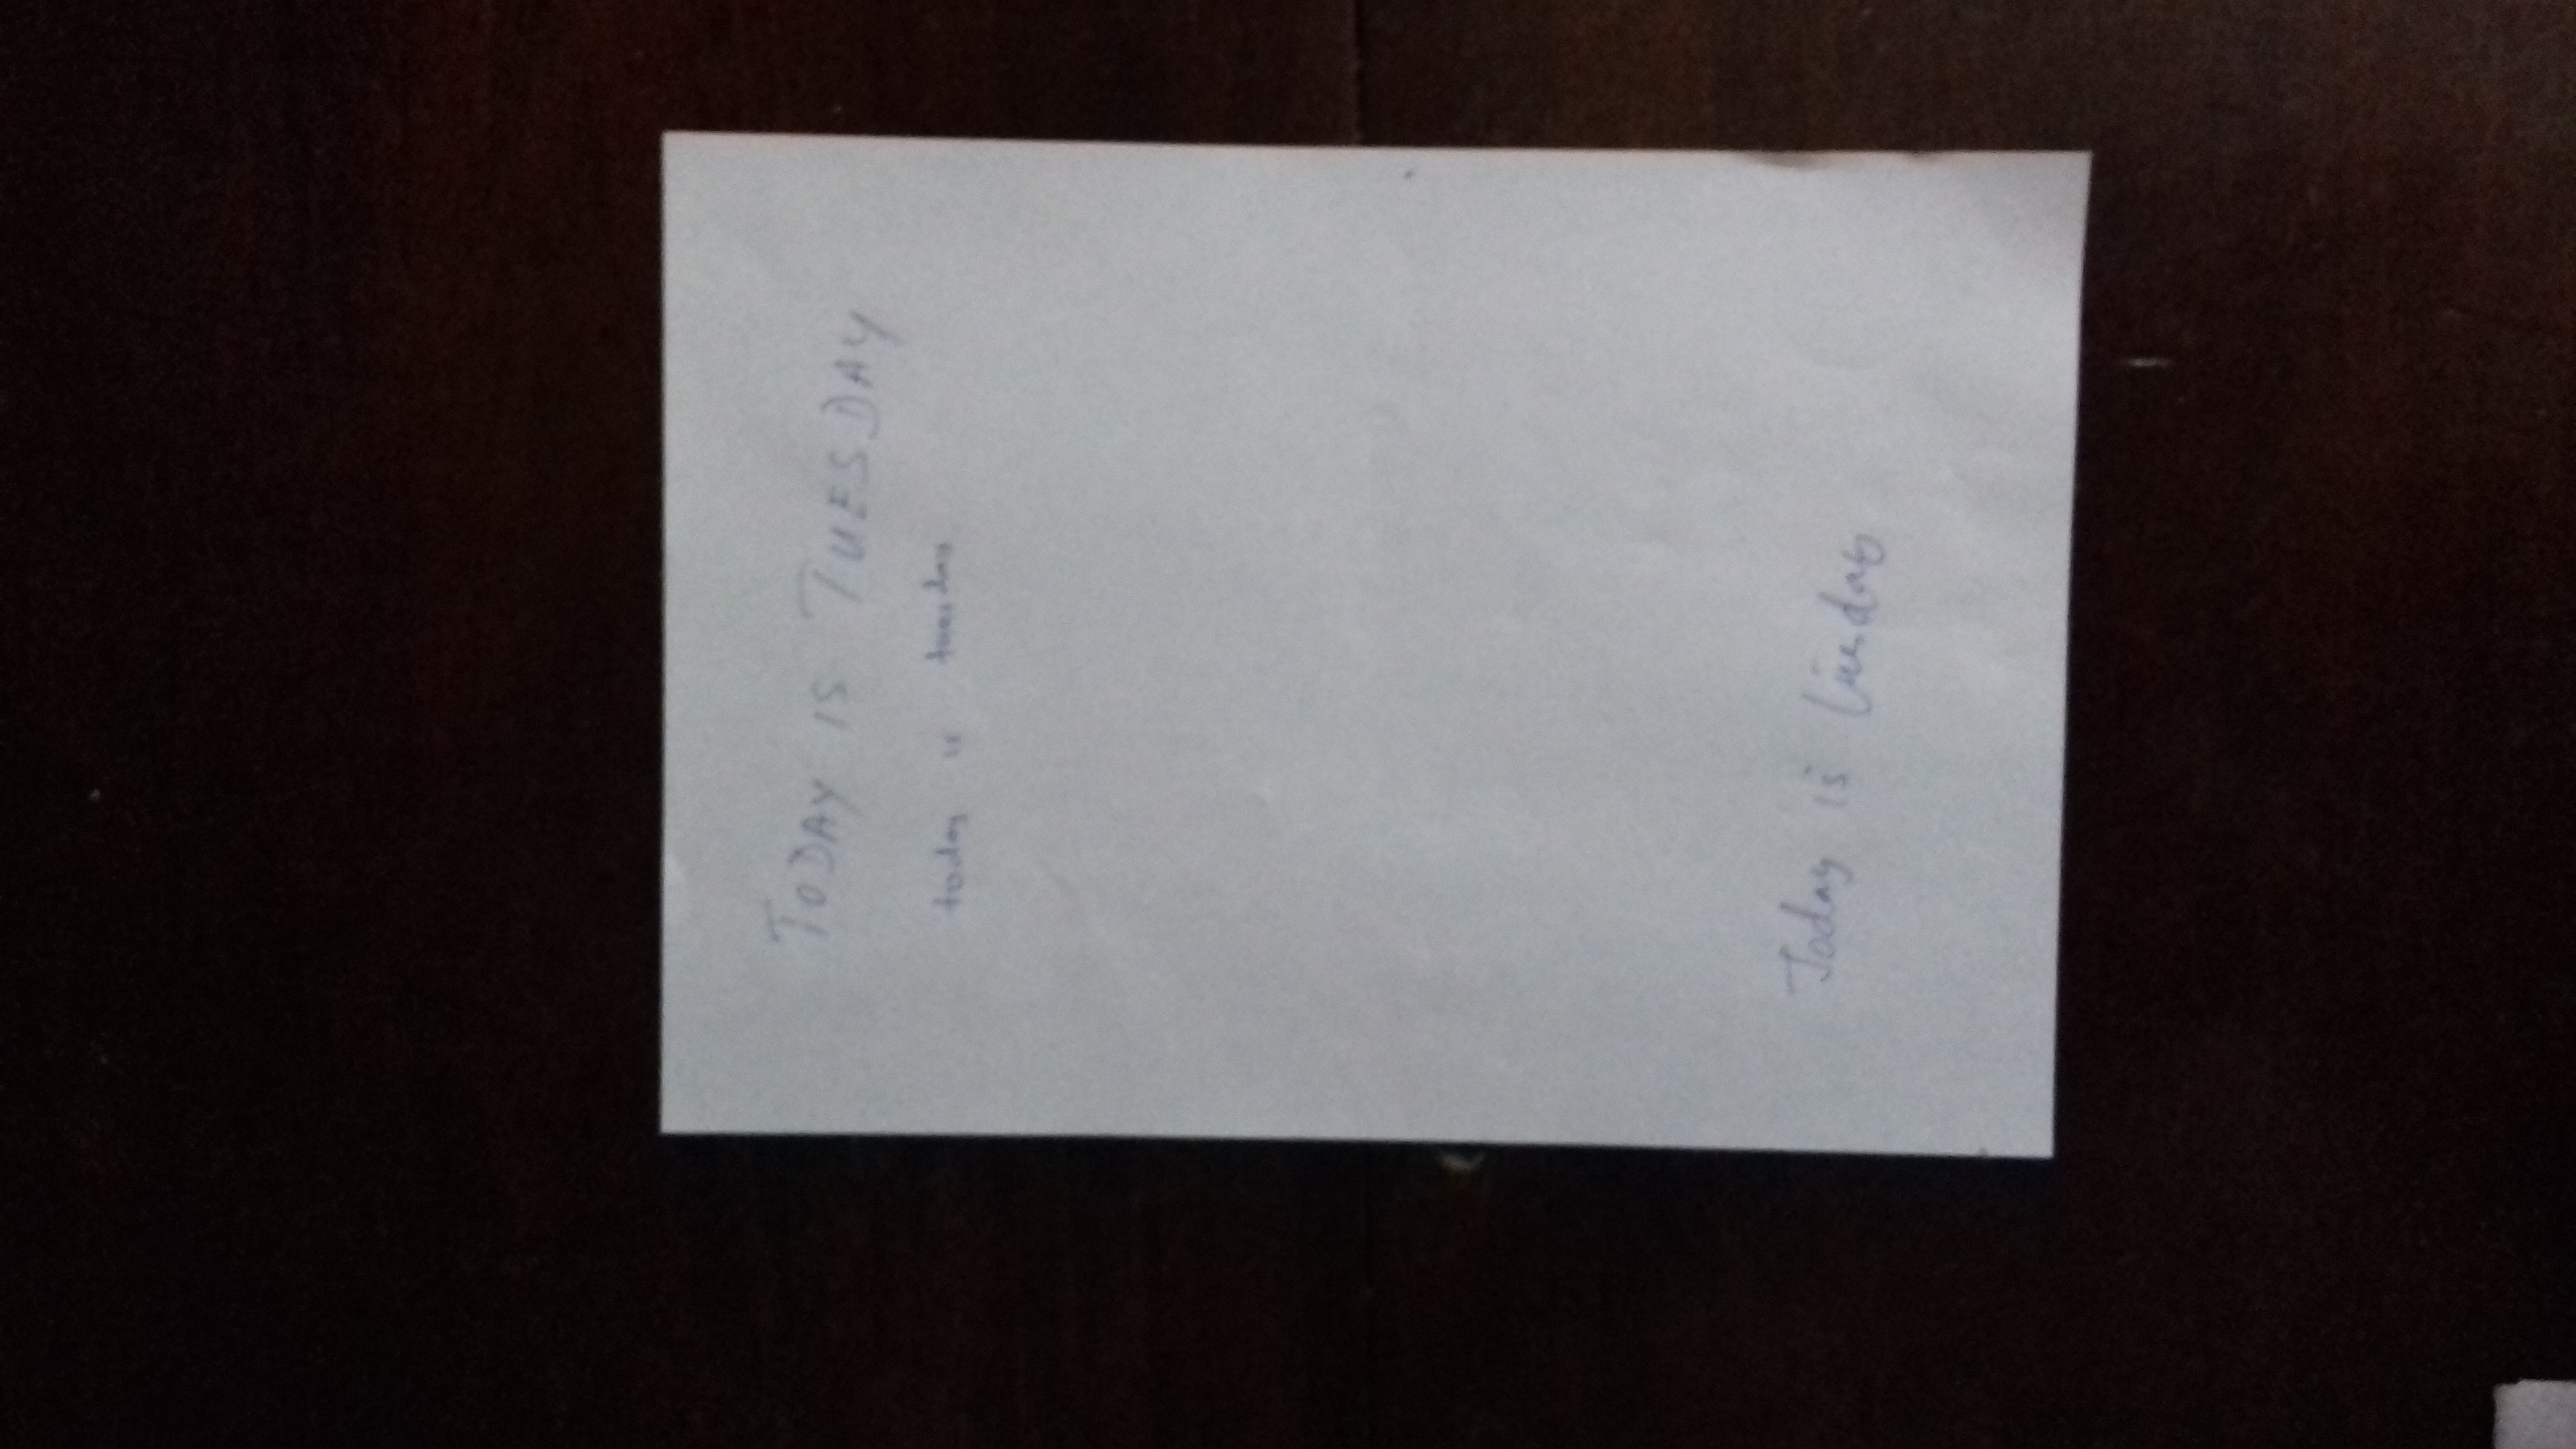 TODAY IS TUESDAY
today is tuesday
Today is Tuesday